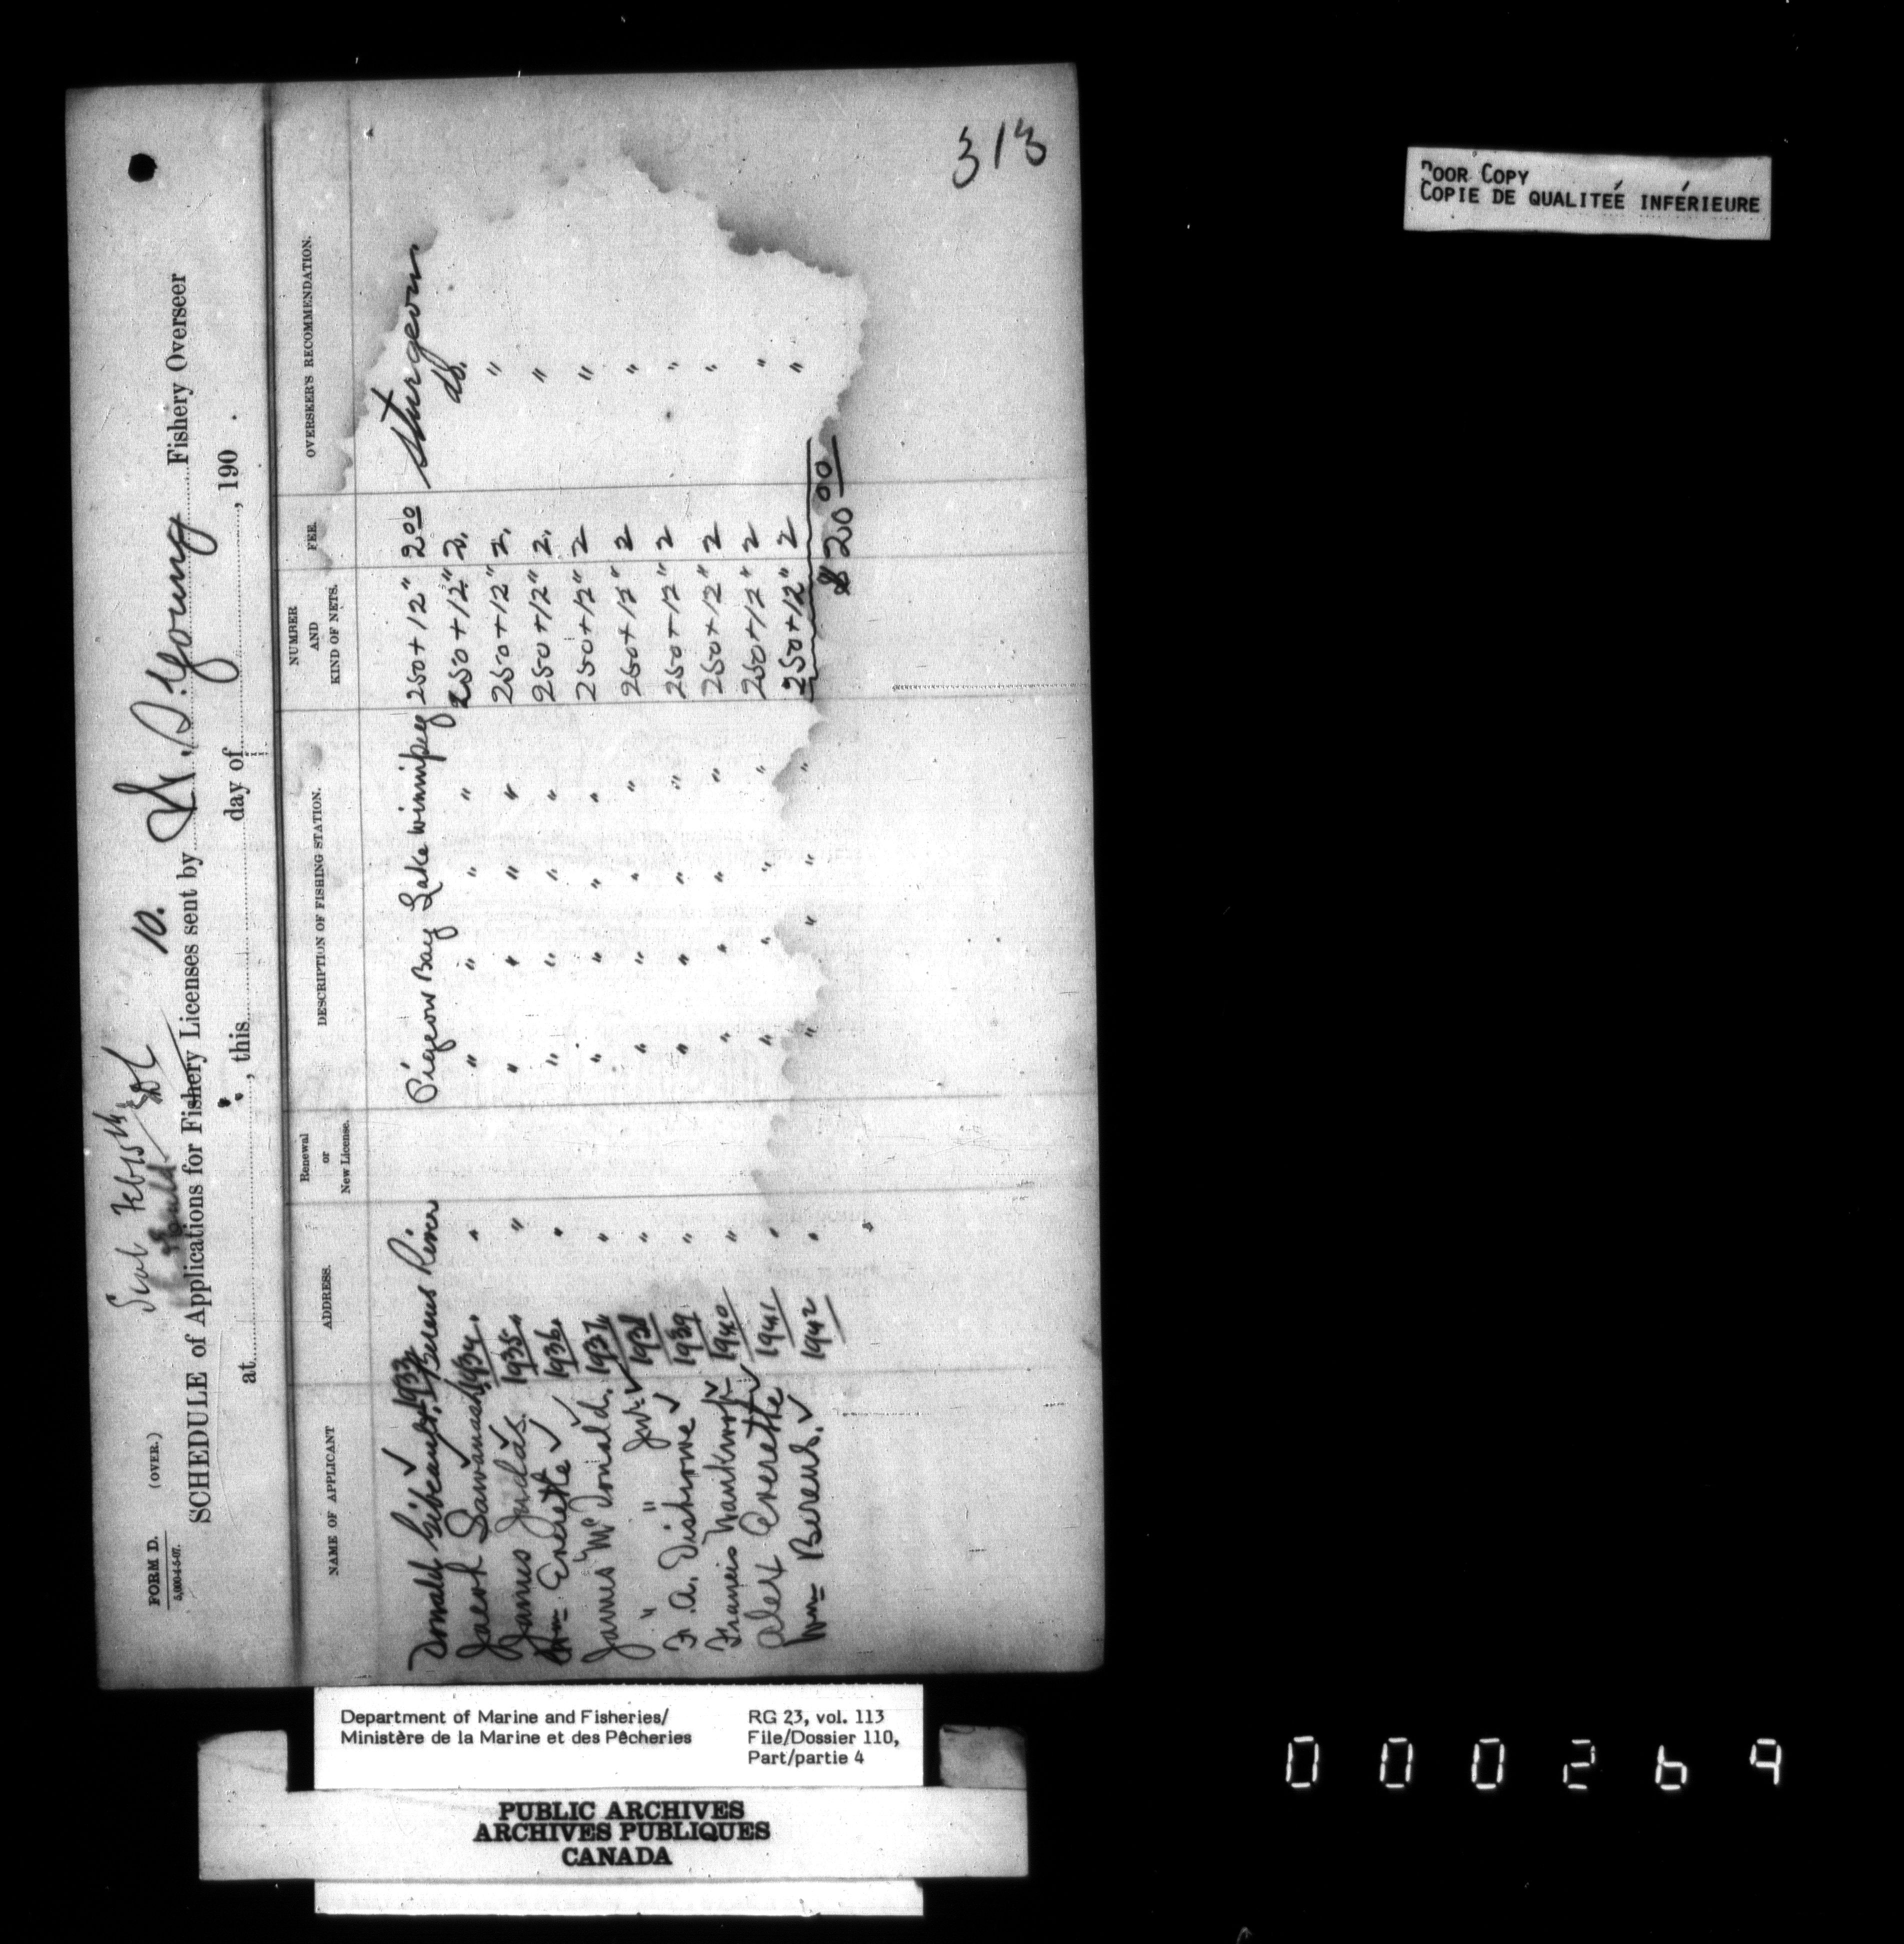 313
POOR COPY
COPIE DE QUALITEÉ INFÉRIEURE
FORM D. (OVER.)
5,000-4-5-07.
Feb 15th
10.
SCHEDULE of Applications for Fishery Licenses sent by Young Fishery Overseer
at , this day of , 190 .
NAME OF APPLICANT ADDRESS. Renewal or New License. DESCRIPTION OF FISHING STATION. NUMBER AND KIND OF NETS. FEE. OVERSEER'S RECOMMENDATION.
Donald 1933 Berens River Pigeon Bay Lake Winnipeg 250 + 12" 2 00 Sturgeon
Jacob 1934. " " " " " 250 + 12" 2. do.
James Judas. 1935. " " " " " 250 + 12" 2. "
Wm Everette 1936. " " " " " 250 + 12" 2. "
James McDonald. 1937 " " " " " 250 + 12" 2 "
" " Jun. 1938 " " " " " 250 + 12" 2 "
F. A. Disbrowe 1939 " " " " " 250 + 12" 2 "
Francis 1940 " " " " " 250 + 12" 2 "
Alex Everette 1941 " " " " " 250 + 12" 2 "
Wm Berens. 1942 " " " " " 250 + 12" 2 "
$ 20 00
Department of Marine and Fisheries/
Ministère de la Marine et des Pêcheries
RG 23, vol. 113
File/Dossier 110,
Part/partie 4
PUBLIC ARCHIVES
ARCHIVES PUBLIQUES
CANADA
000269